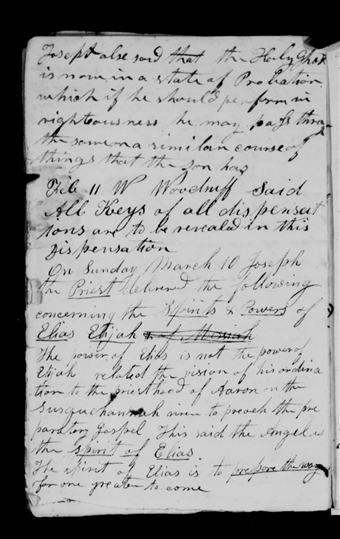 Joseph also said that the Holy Ghost
is now in a state of Probation
which if he should perform in
righteousness he may pass through
the same or a similar course of
things that the son has
Feb 11 W Woodruff Said
All Keys of all dispensat
tions are to be revealed in this
Dispensation
On Sunday March 10 Joseph
the Priest delivered the following
concerning the Spirits & Powers of
Elias Elijah & of Messiah
The power of Elias is not the power of
Elijah related the vision of his ordina
tion to the priesthood of Aaron on the
Susquehannah river to preach the pre
paratory Gospel This said the Angel is
the spirit of Elias
The spirit of Elias is to prepare the way
for one greater to come